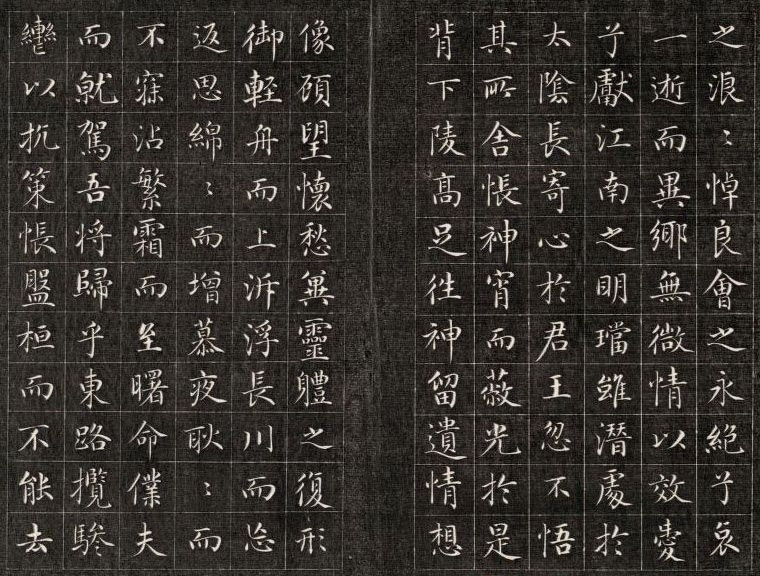 之浪〻悼良會之永絕兮哀
一逝而異鄉無微情以效愛
兮獻江南之明璫雖潛處於
太陰長寄心於君王忽不悟
其所舍悵神宵而蔽光於是
背下陵高足往神留遺情想
像顧望懷愁冀靈軆之復形
御輕舟而上泝浮長川而忘
返思綿〻而增慕夜耿〻而
不寐沾繁霜而至曙命僕夫
而就駕吾將歸乎東路攬驂
轡以抗策悵盤桓而不能去